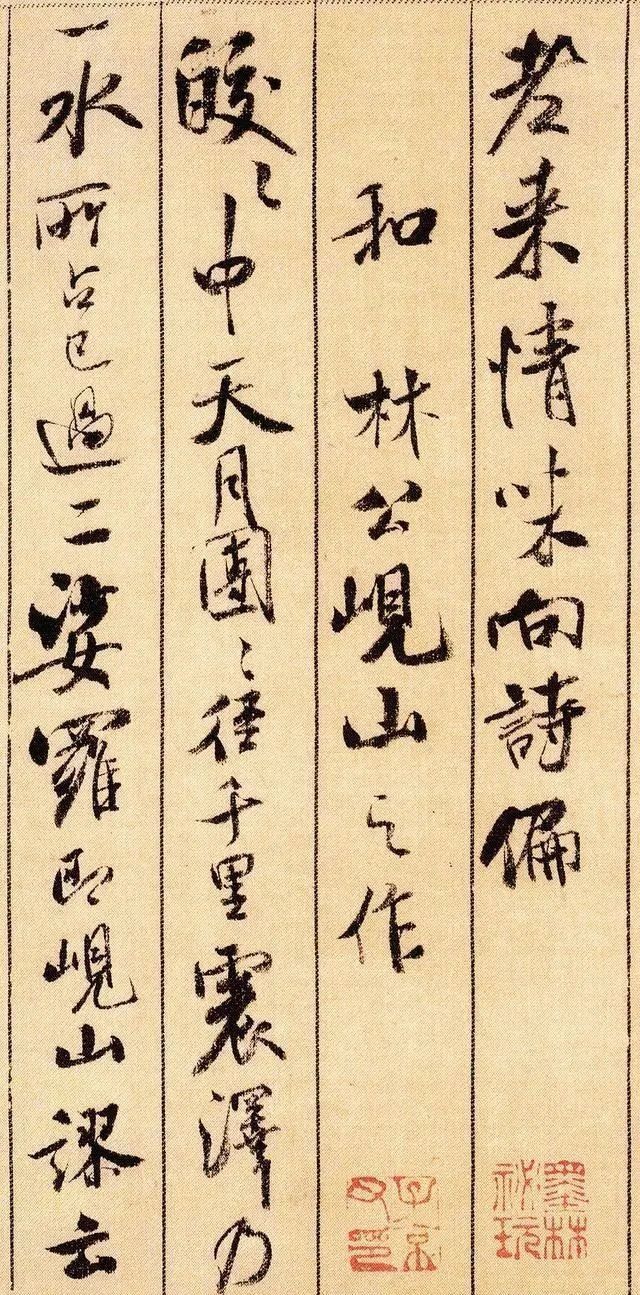 老来情味向詩偏
和林公峴山之作
皎〻中天月團〻徑千里震澤乃
一水所占已過二娑羅即峴山謬云
墨林
祕玩
子京
父印